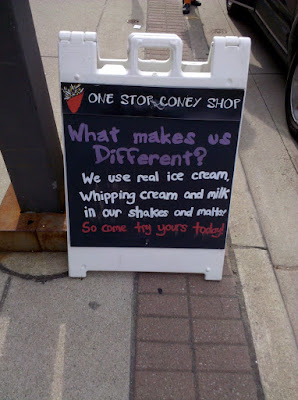 ONE STOP CONEY SHOP
What makes us
Different?
We use real ice cream,
Whipping cream and milk
in our shakes and malts!
So come try yours today!